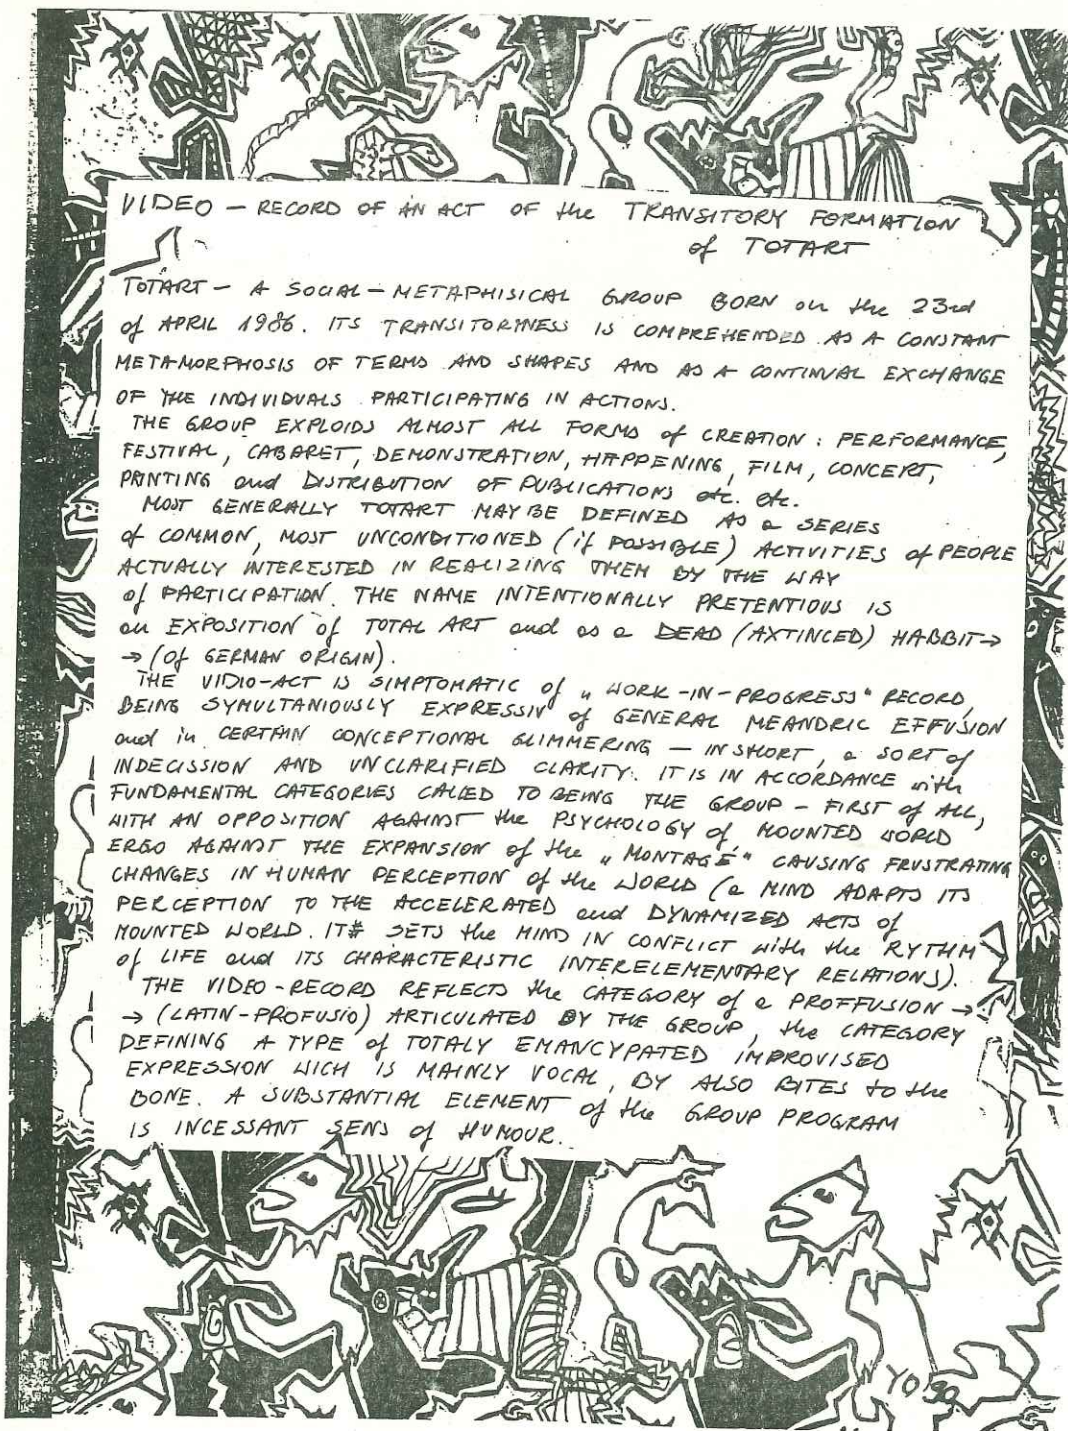 VIDEO — RECORD OF AN ACT OF the TRANSITORY FORMATION
of TOTART
TOTART — A SOCIAL — METAPHISICAL GROUP BORN on the 23rd
of APRIL 1986. ITS TRANSITORYNESS IS COMPREHENDED AS A CONSTANT
METAMORPHOSIS OF TERMS AND SHAPES AND AS A CONTINUAL EXCHANGE
OF THE INDIVIDUALS PARTICIPATING IN ACTIONS.
THE GROUP EXPLOIDS ALMOST ALL FORMS of CREATION : PERFORMANCE,
FESTIVAL, CABARET, DEMONSTRATION, HAPPENING, FILM, CONCERT,
PRINTING and DISTRIBUTION OF PUBLICATIONS etc. etc.
MOST GENERALLY TOTART MAY BE DEFINED AS a SERIES
of COMMON, MOST UNCONDITIONED (if POSSIBLE) ACTIVITIES of PEOPLE
ACTUALLY INTERESTED IN REALIZING THEM BY THE WAY
of PARTICIPATION. THE NAME INTENTIONALLY PRETENTIOUS IS
an EXPOSITION of TOTAL ART and as a DEAD (AXTINCED) HABBIT →
→ (OF GERMAN ORIGIN).
THE VIDIO-ACT IS SIMPTOMATIC of „WORK-IN-PROGRESS" RECORD,
BEING SYMULTANIOUSLY EXPRESSIV of GENERAL MEANDRIC EFFUSION
and in CERTAIN CONCEPTIONAL GLIMMERING — IN SHORT, a SORT of
INDECISSION AND UNCLARIFIED CLARITY. IT IS IN ACCORDANCE with
FUNDAMENTAL CATEGORIES CALLED TO BEING THE GROUP — FIRST of ALL,
WITH AN OPPOSITION AGAINST the PSYCHOLOGY of MOUNTED WORLD
ERGO AGAINST THE EXPANSION of the „MONTAGÉ" CAUSING FRUSTRATING
CHANGES IN HUMAN PERCEPTION of the WORLD (a MIND ADAPTS ITS
PERCEPTION TO THE ACCELERATED and DYNAMIZED ACTS of
MOUNTED WORLD. IT SETS the MIND IN CONFLICT with the RYTHM
of LIFE and ITS CHARACTERISTIC INTERELEMENTARY RELATIONS).
THE VIDEO-RECORD REFLECTS the CATEGORY of a PROFFUSION →
→ (LATIN-PROFUSIO) ARTICULATED BY THE GROUP, the CATEGORY
DEFINING A TYPE of TOTALY EMANCYPATED IMPROVISED
EXPRESSION WICH IS MAINLY VOCAL, BY ALSO BITES to the
BONE. A SUBSTANTIAL ELEMENT of the GROUP PROGRAM
IS INCESSANT SENS of HUMOUR.
YO 90